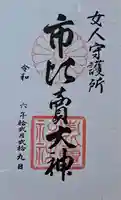 女人守護所
市比賣大神
令和
六年拾弐月弐拾九日